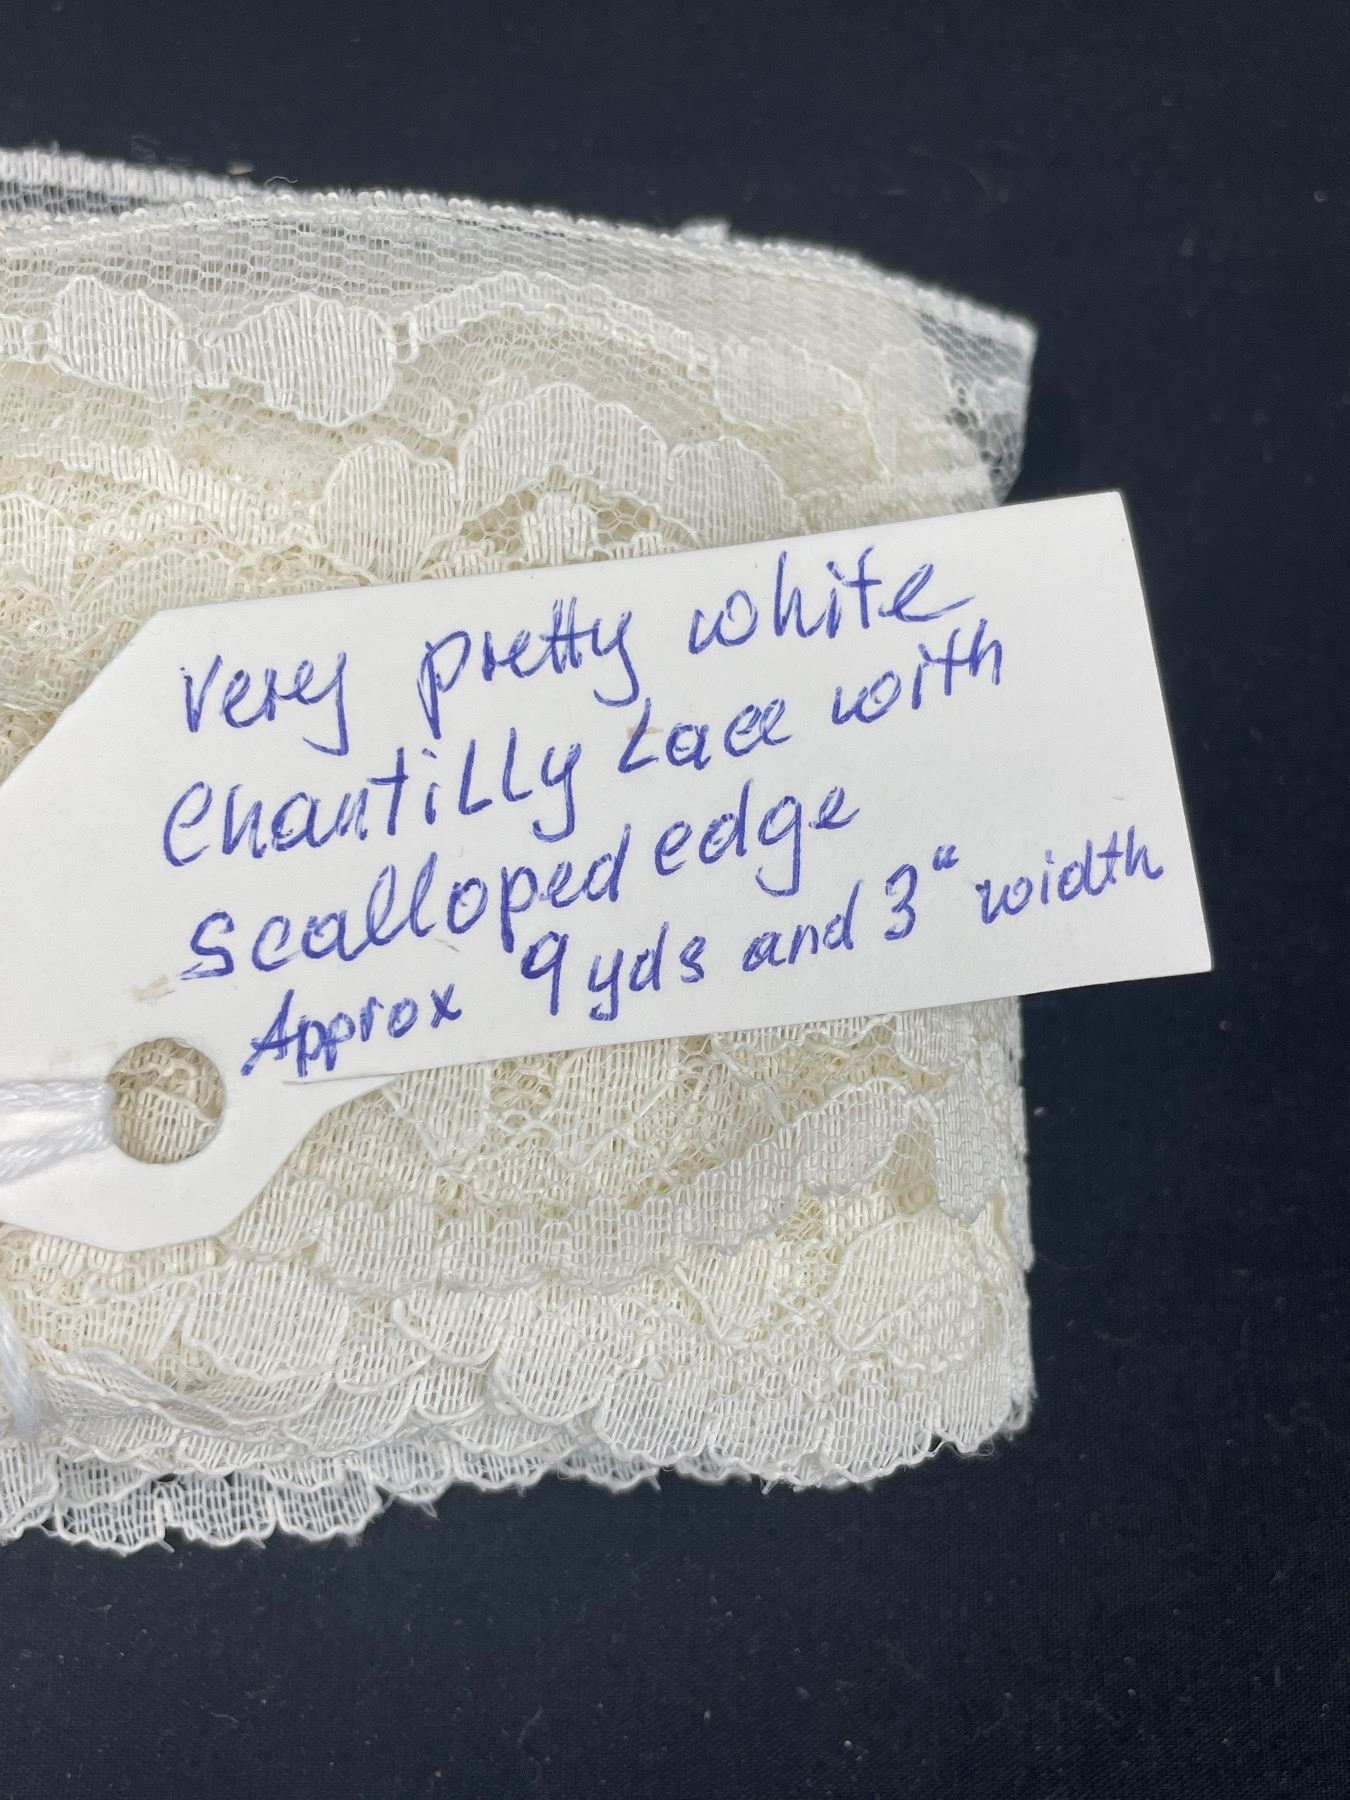 very pretty white
Chantilly Lace with
scalloped edge
Approx 9 yds and 3" width